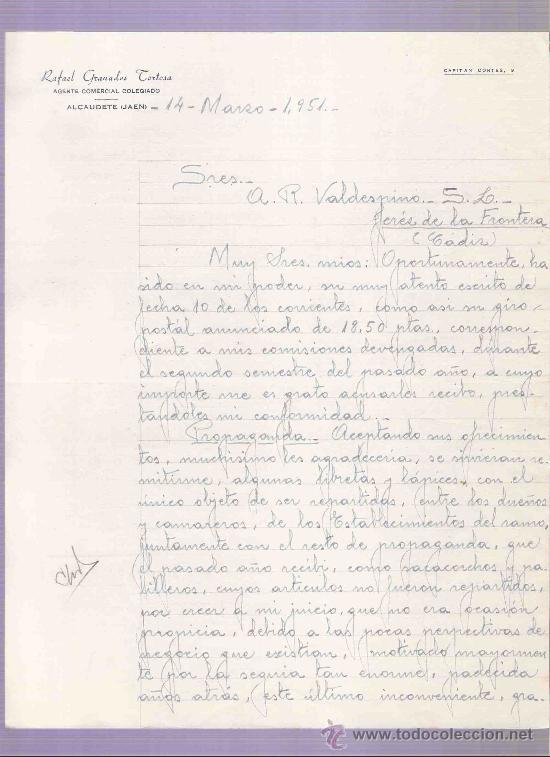 Rafael Granados Tortosa
AGENTE COMERCIAL COLEGIADO
CAPITAN CORTES, 9
ALCAUDETE (JAEN) - 14 - Marzo - 1,951.-
Sres.-
A. R. Valdespino.- S. L.-
Jerés de la Frontera
(Cádiz)
Muy Sres. mios: Oportunamente, ha
sido en mi poder, su muy atento escrito de
fecha 10 de los corrientes, como asi su giro-
postal anunciado de 18,50 ptas, correspon-
diente a mis comisiones devengadas, durante
el segundo semestre del pasado año, a cuyo
importe me es grato acusarles recibo, pres-
tandoles mi conformidad.-
Propaganda.- Aceptando sus ofrecimien
tos, muchisimo les agradeceria, se sirvieran re-
mitirme, algunas libretas y lápices, con el
único objeto de ser repartidas, entre los dueños
y camareros, de los Establecimientos del ramo,
juntamente con el resto de propaganda, que
el pasado año recibi, como sacacorchos y pa-
lilleros, cuyos articulos no fueron repartidos,
por creer a mi juicio, que no era ocasión
propicia, debido a las pocas perspectivas de
negocio que existian, motivado mayormen
te por la sequia tan enorme, padecida
años atrás, este último inconveniente, gra.
todocoleccion
www.todocoleccion.net